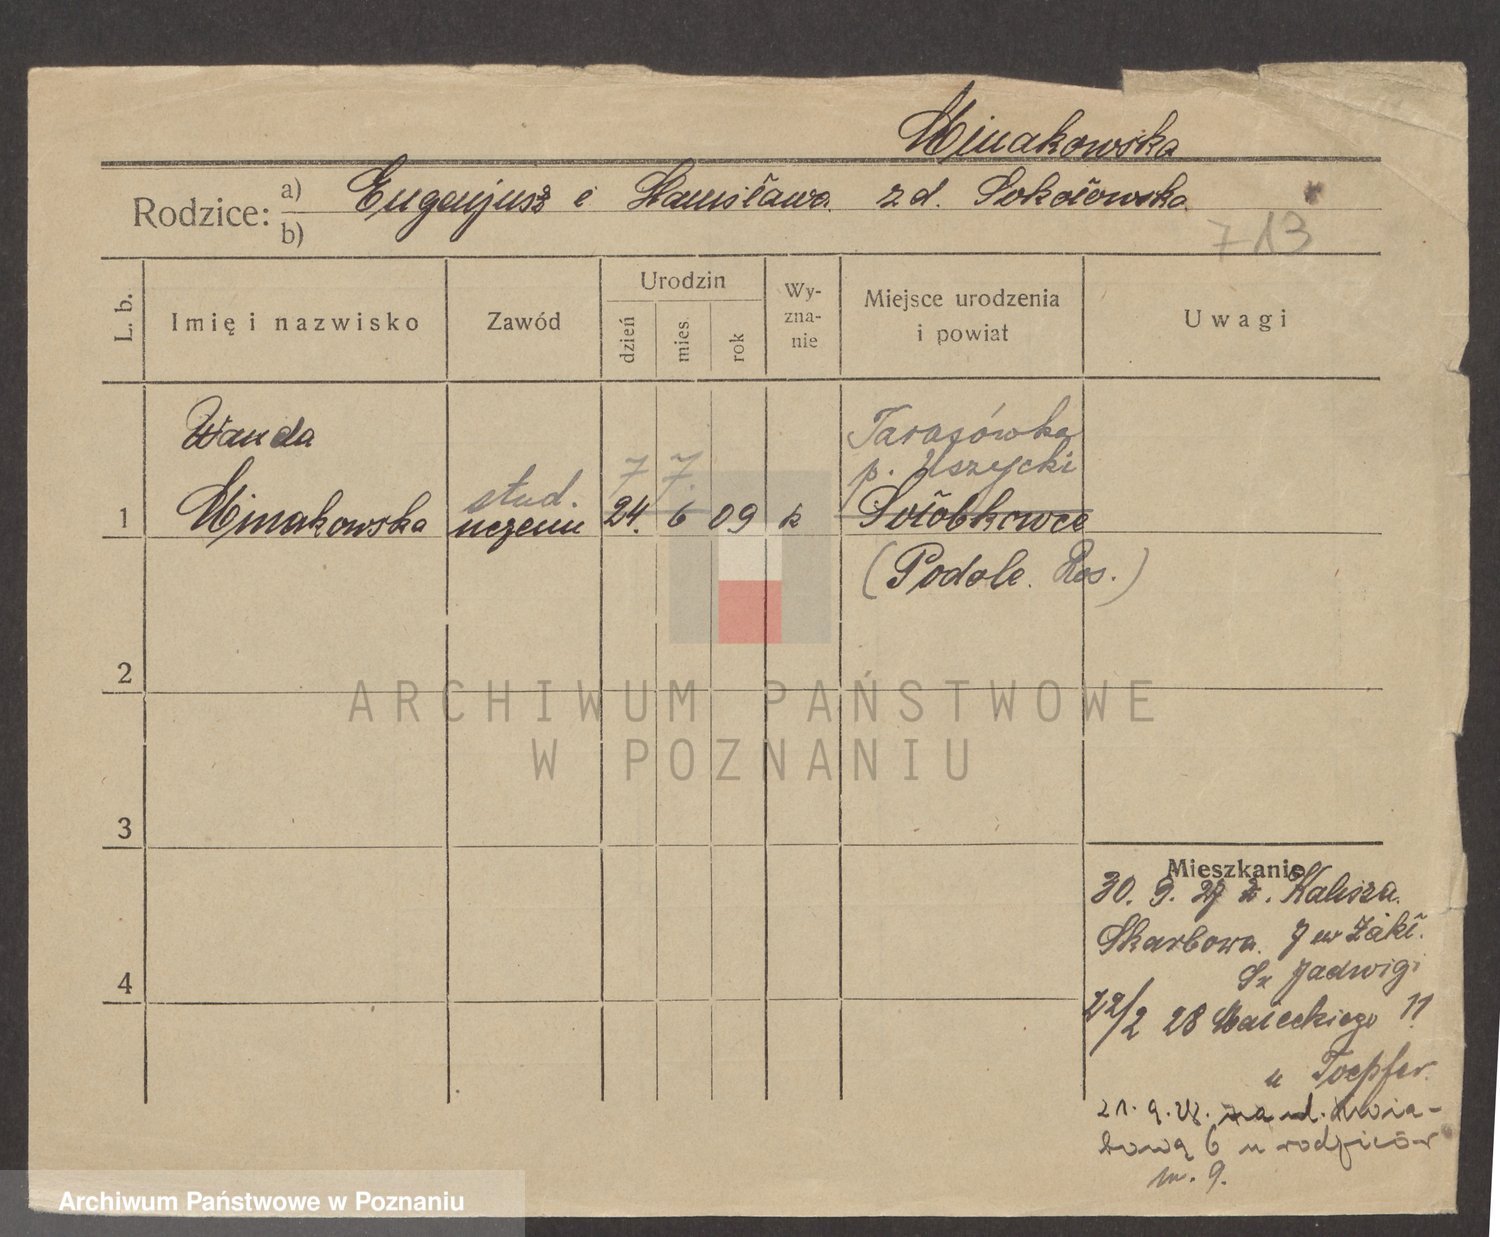 Minakowska
Rodzice: a) Eugenjusz i Stanisława z d. Sokołowska
b)
713
L. b.
Imię i nazwisko
Zawód
Urodzin
dzień
mies.
rok
Wy-
zna-
nie
Miejsce urodzenia
i powiat
Uwagi
Wanda
Tarasówka
7 7.
p. Uszycki
stud.
1 Minakowska uczenn 24. 6 09 k Sołobkowce
(Podole. Ros.)
2
ARCHIWUM PAŃSTWOWE
W POZNANIU
3
Mieszkanie
30. 9. 27 z. Kalisza.
Skarbowa. 7 w Zakł.
Sz Jadwigi
4
22/2 28 Małeckiego 11
u Toepfer.
21. 9. 28. na ul. Kwia-
tową 6 u rodziców
m. 9.
Archiwum Państwowe w Poznaniu